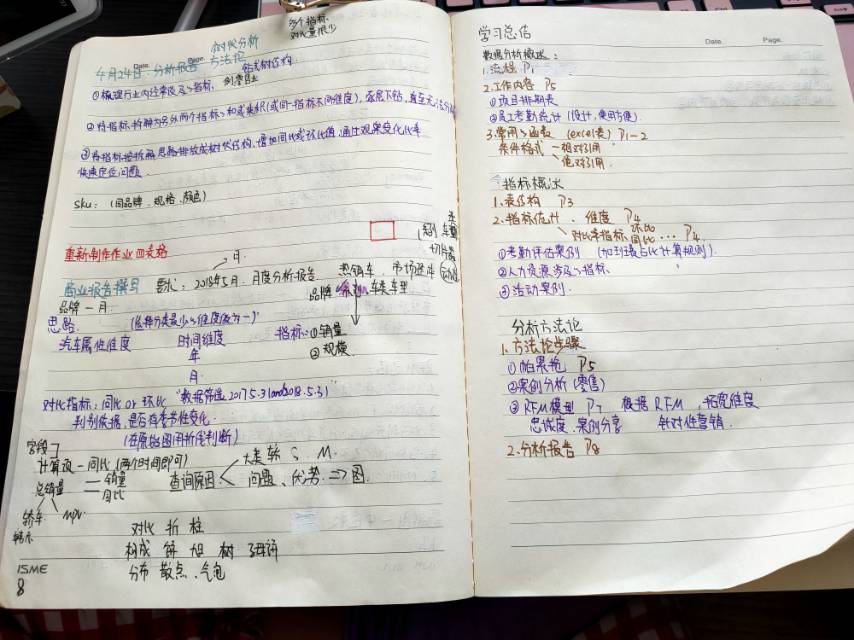 多个指标
对比量很少
对比分析
Date.
Page.
4月24日. 分析报告 方法论
钻式树结构.
①梳理行业内经常涉及的指标、
②将指标拆解为另外两个指标的和或乘积(或同一指标不同维度), 逐层下钻, 直至无法
③将指标按拆解思路排放成树状结构、增加同比或环比值, 通过观察变化比率
快速定位问题.
Sku: (同品牌、规格、颜色)
重新制作作业四表格
月.
商业报告撰写
2018年5月. 月度分析报告
热销车、市场
品牌一月
品牌
车类 车型
思路
汽车属性维度
时间维度
指标: ①销量
年
②规模.
月.
对比指标: 同比 or 环比 "数据筛选 2017.5.31and2018.5.31"
判别依据, 是否有季节性变化.
(在原始图用折线判断)
字段
计算项 - 同比 (两个时间即可)
总销量
销量
同比
查询原因
大类 轿
M.
问题、优势 => 图.
轿车
MPV
对比 折 柱
构成 饼 旭 树 子母饼
分布 散点、气泡
ISME
8
学习总结
Date.
Page.
数据分析概述:
1. 流程 P1
2. 工作内容 P5
①项目排期表
②员工考勤统计 (设计、使用方便)
3. 常用的函数 (excel表) P1-2
条件格式 - 相对引用
绝对引用.
指标概述
1. 表结构 P3
2. 指标估计、维度 P4
对比率指标 环比 同比 ... P4.
①考勤评估案例 (加到最占比计算规则).
②人力资源涉及的指标.
③活动案例.
分析方法论
1. 方法论步骤
①帕累托 P5
②案例分析 (零售)
③RFM模型 P7 根据RFM、拓宽维度
忠诚度、案例分享 针对性营销.
2. 分析报告 P8